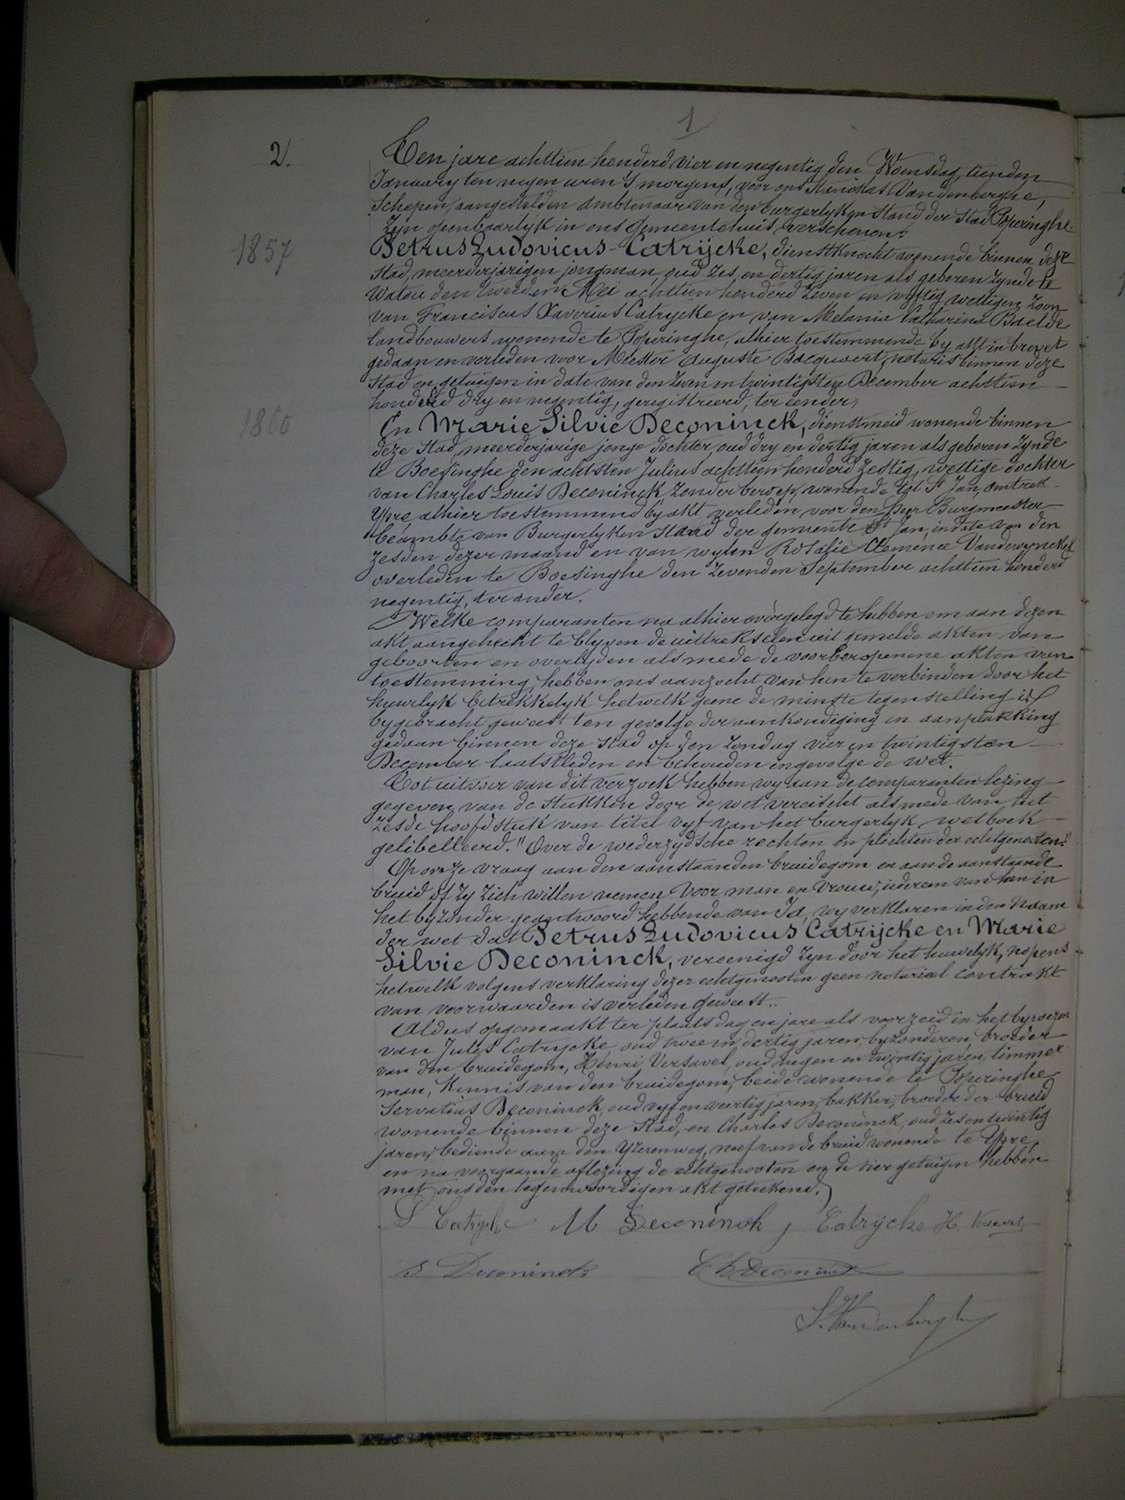 1
2.
Ten jare achttien honderd vier en negentig den Woensdag tienden
January ten negen uren 's morgens, voor ons Stanislas Vandenberghe,
Schepen, aangestelden ambtenaar van den burgerlyken Stand der Stad Poperinghe
zyn openbaarlyk in ons Gemeentehuis, verschenen:
1857
Petrus Ludovicus Catrijcke, dienstknecht wonende binnen deze
stad, meerderjarigen jongman oud zes en dertig jaren als geboren zynde te
Watou den tweeden Mei achttien honderd zeven en vyftig, wettigen zoon
van Franciscus Xaverius Catrycke en van Melania Catharina Baelde
landbouwers wonende te Poperinghe, alhier toestemmende by akt in brevet
gedaan en verleden voor Meester Auguste Bacquaert, notaris binnen deze
stad en getuigen in date van den zeven en twintigsten December achttien
honderd dry en negentig, geregistreerd, ter eender,
1860
En Marie Silvie Deconinck, dienstmeid wonende binnen
deze stad, meerderjarige jonge dochter, oud dry en dertig jaren als geboren zynde
te Boesinghe den achtsten Julius achttien honderd zestig, wettige dochter
van Charles Louis Deconinck, zonder beroep, wonende tot St Jan, omtrek
Ypre alhier toestemmend by akt verleden voor den Heer Burgmeester
beambte van Burgerlyken Staad der gemeente St Jan, in date van den
zesden dezer maand en van wylen Rosalie Clemence Vanderwynckel
overleden te Boesinghe den zevenden September achttien honderd
negentig, ter ander.
Welke comparanten na alhier voorgelegd te hebben om aan dezen
akt aangehecht te blyven de uittrekselen uit gemelde akten van
geboorten en overlyden als mede de voorberoepene akten van
toestemming hebben ons aanzocht van hen te verbinden door het
huwelyk betrekkelyk hetwelk geene de minste tegenstelling is
bygebracht geweest ten gevolge der aankondiging en aanplakking
gedaan binnen deze stad op den zondag vier en twintigsten
December laatstleden en behouden ingevolge de wet.
Tot uitvoer van dit verzoek hebben wy aan de comparanten lezing
gegeven van de stukken door de wet vereischt als mede van het
zesde hoofdstuk van titel vyf van het burgerlyk wetboek
gelibelleerd: "Over de wederzydsche rechten en plichten der echtgenooten."
Op onze vraag aan den aanstaanden bruidegom en aan de aanstaande
bruid of zy zich willen nemen voor man en vrouw; iedereen van hen in
het byzonder geantwoord hebbende van Ja, wy verklaren in den naam
der wet dat Petrus Ludovicus Catrijcke en Marie
Silvie Deconinck, vereenigd zyn door het huwelyk, nopens
hetwelk volgens verklaring dezer echtgenooten geen notariael contrakt
van voorwaarden is verleden geweest.
Aldus opgemaakt ter plaats dag en jare als voorzeid in het bywezen
van Jules Catrycke, oud twee en dertig jaren, byzonderen, broeder
van den bruidegom, Henri Versavel, oud negen en twintig jaren, timmer
man, kennis van den bruidegom, beide wonende te Poperinghe,
Servatius Deconinck, oud vyf en veertig jaren, bakker, broeder der bruid
wonende binnen deze stad, en Charles Deconinck, oud zes en twintig
jaren, bediende aan den Yzerenweg, neef van de bruid wonende te Ypre,
en na voorgaande aflezing de echtgenooten en de vier getuigen hebben
met ons den tegenwoordigen akt geteekend.
M Deconinck J Catrijcke H. Versavel
S Deconinck Ch Deconinck
S. Vandenberghe